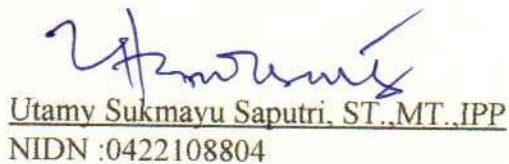 Utamy Sukmayu Saputri, ST.,MT.,IPP
NIDN :0422108804